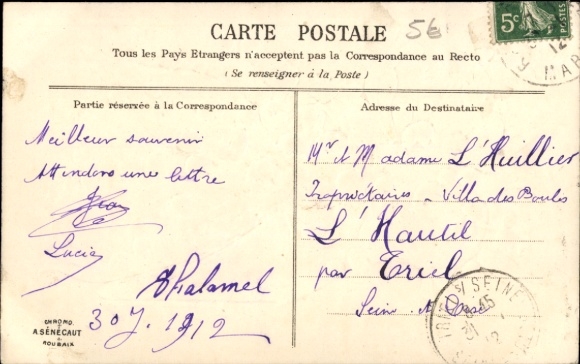 CARTE POSTALE
56
Tous les Pays Etrangers n'acceptent pas la Correspondance au Recto
(Se renseigner à la Poste)
5c
POSTES
12
Partie réservée à la Correspondance
Meilleur souvenir
Attendons une lettre
Lucie
Thalamel
30 J. 1912
CHROMO
A. SÉNÉCAUT
ROUBAIX
Adresse du Destinataire
Mr et Madame L'Huillier
Propriétaires - Villa des Boules
L'Hautil
par Triel
Seine et Oise
S/ SEINE